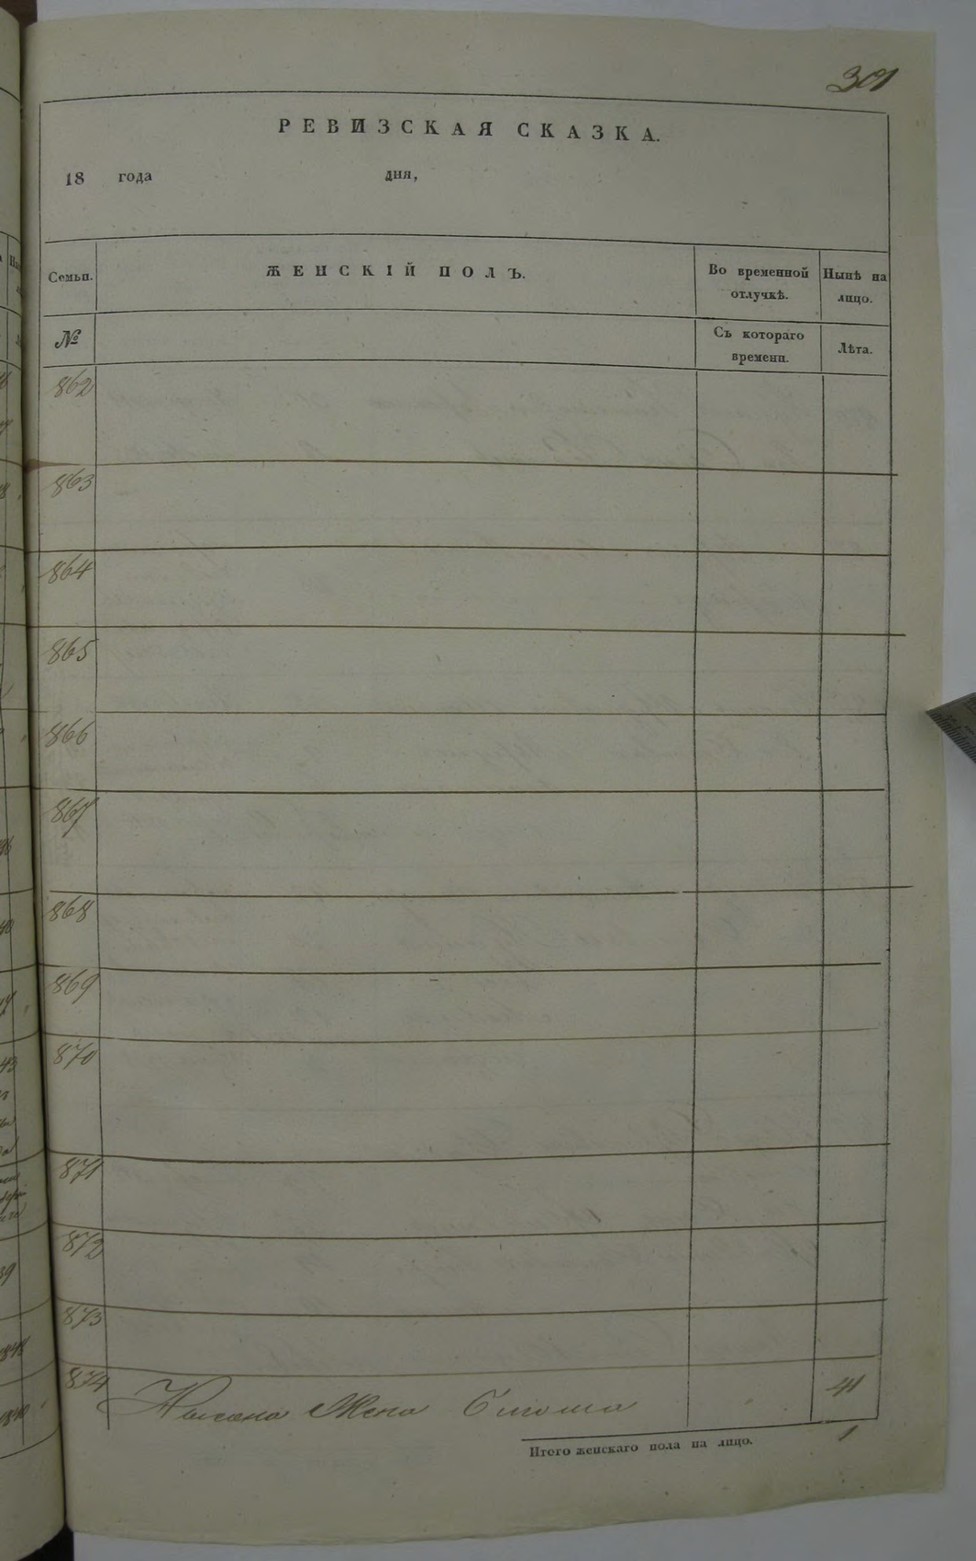 301
РЕВИЗСКАЯ СКАЗКА.
18 года дня,
Семьи. ЖЕНСКІЙ ПОЛЪ. Во временной отлучкѣ. Нынѣ на лицо.
№ Съ котораго времени. Лѣта.
862
863
864
865
866
867
868
869
870
871
872
873
874 Жена 41
Итого женскаго пола на лицо. 1